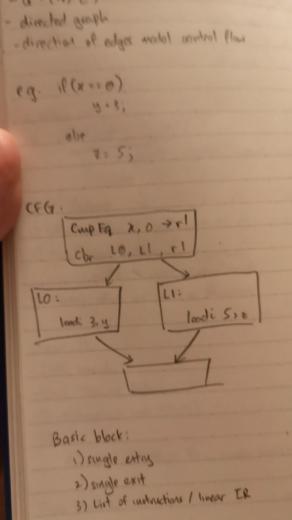 - directed graph
- direction of edges model control flow
e.g. if (x == 0)
y = 3;
else
z = 5;
CFG.
CmpEq x, 0 → r1
cbr L0, L1, r1
L0:
loadi 3, y
L1:
loadi 5, z
Basic block:
1) single entry
2) single exit
3) List of instructions / linear IR